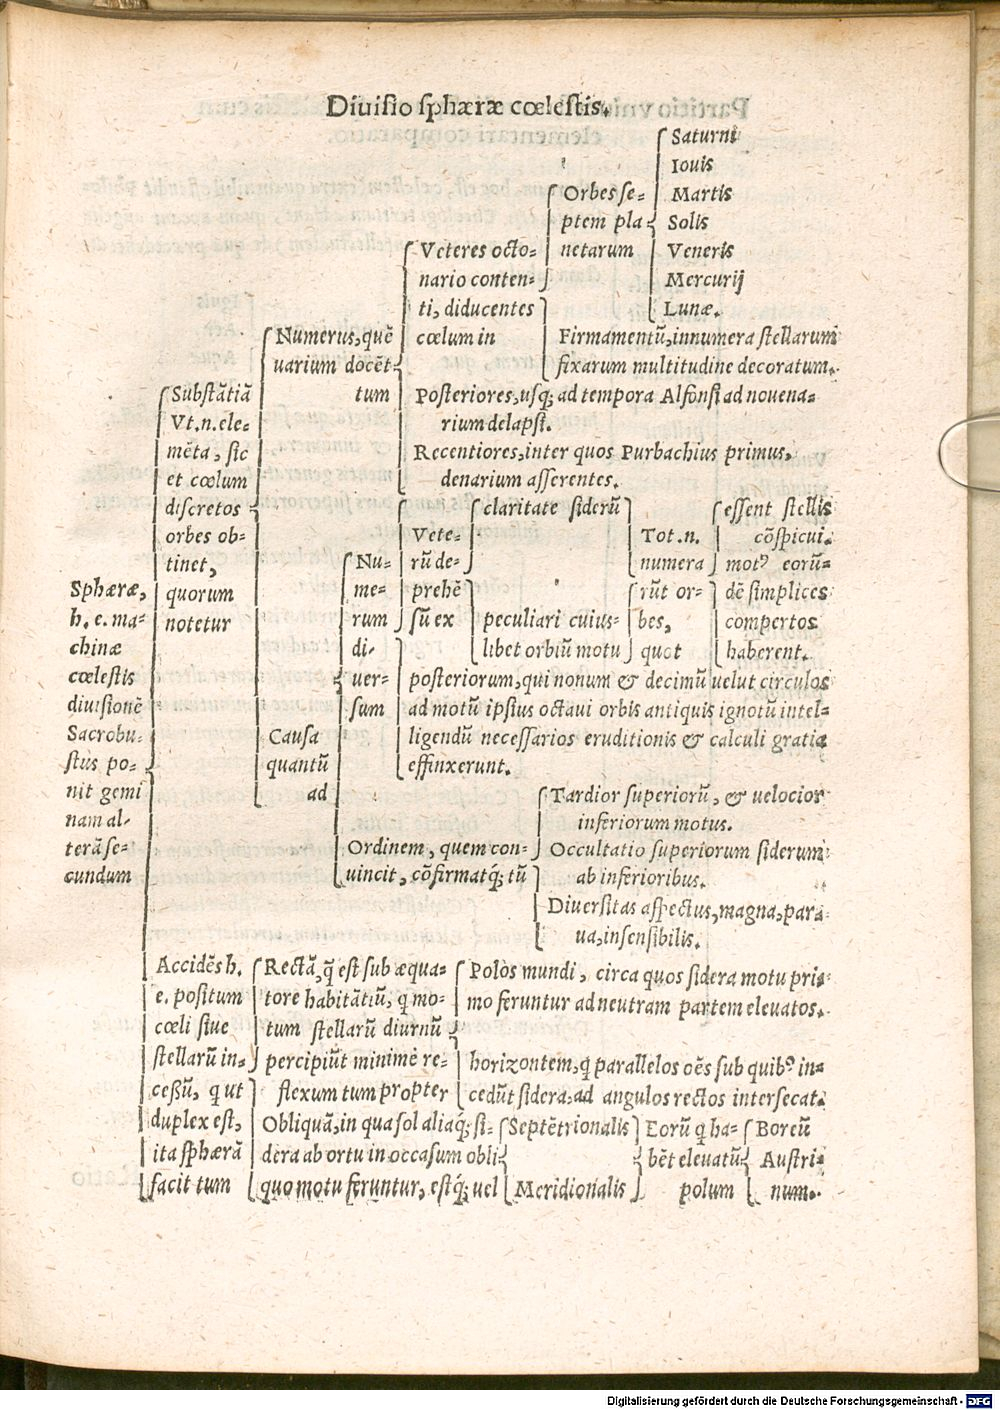 Diuisio sphæræ cœlestis.
Sphæræ,
h. e. ma-
chinæ
cœlestis
diuisionē
Sacrobu-
stus po-
nit gemi
nam al-
terā se-
cundum
Substātiā
Vt.n.ele-
mēta, sic
et cœlum
discretos
orbes ob-
tinet,
quorum
notetur
Numerus, quē
uarium docēt
tum
Veteres octo-
nario conten-
ti, diducentes
cœlum in
Orbes se-
ptem pla-
netarum
Saturni
Iouis
Martis
Solis
Veneris
Mercurij
Lunæ.
Firmamentū, innumera stellarum
fixarum multitudine decoratum.
Posteriores, usq; ad tempora Alfonsi ad nouena-
rium delapsi.
Recentiores, inter quos Purbachius primus,
denarium asserentes.
Causa
quantū
ad
Nu-
me-
rum
di-
uer-
sum
Vete-
rū de-
prehē
sū ex
claritate siderū
peculiari cuius-
libet orbiū motu
Tot.n.
numera
rūt or-
bes,
quot
essent stellis
cōspicui.
motꝰ eorū-
dē simplices
compertos
haberent.
posteriorum, qui nonum & decimū uelut circulos
ad motū ipsius octaui orbis antiquis ignotū intel-
ligendū necessarios eruditionis & calculi gratia
effinxerunt.
Ordinem, quem con-
uincit, cōfirmatq; tū
Tardior superiorū, & uelocior
inferiorum motus.
Occultatio superiorum siderum
ab inferioribus.
Diuersitas aspectus, magna, par-
ua, insensibilis.
Accidēs h.
e. positum
cœli siue
stellarū in-
cessū, q ut
duplex est,
ita sphærā
facit tum
Rectā, q̄ est sub æqua-
tore habitātiū, q mo-
tum stellarū diurnū
percipiūt minimè re-
flexum tum propter
Polos mundi, circa quos sidera motu pri-
mo feruntur ad neutram partem eleuatos.
horizontem, q parallelos oēs sub quibꝰ in-
cedūt sidera, ad angulos rectos intersecat.
Obliquā, in qua sol aliaq; si-
dera ab ortu in occasum obli
quo motu feruntur, estq; uel
Septētrionalis
Meridionalis
Eorū q ha-
bēt eleuatū
polum
Boreū
Austri-
num.
Digitalisierung gefördert durch die Deutsche Forschungsgemeinschaft - DFG